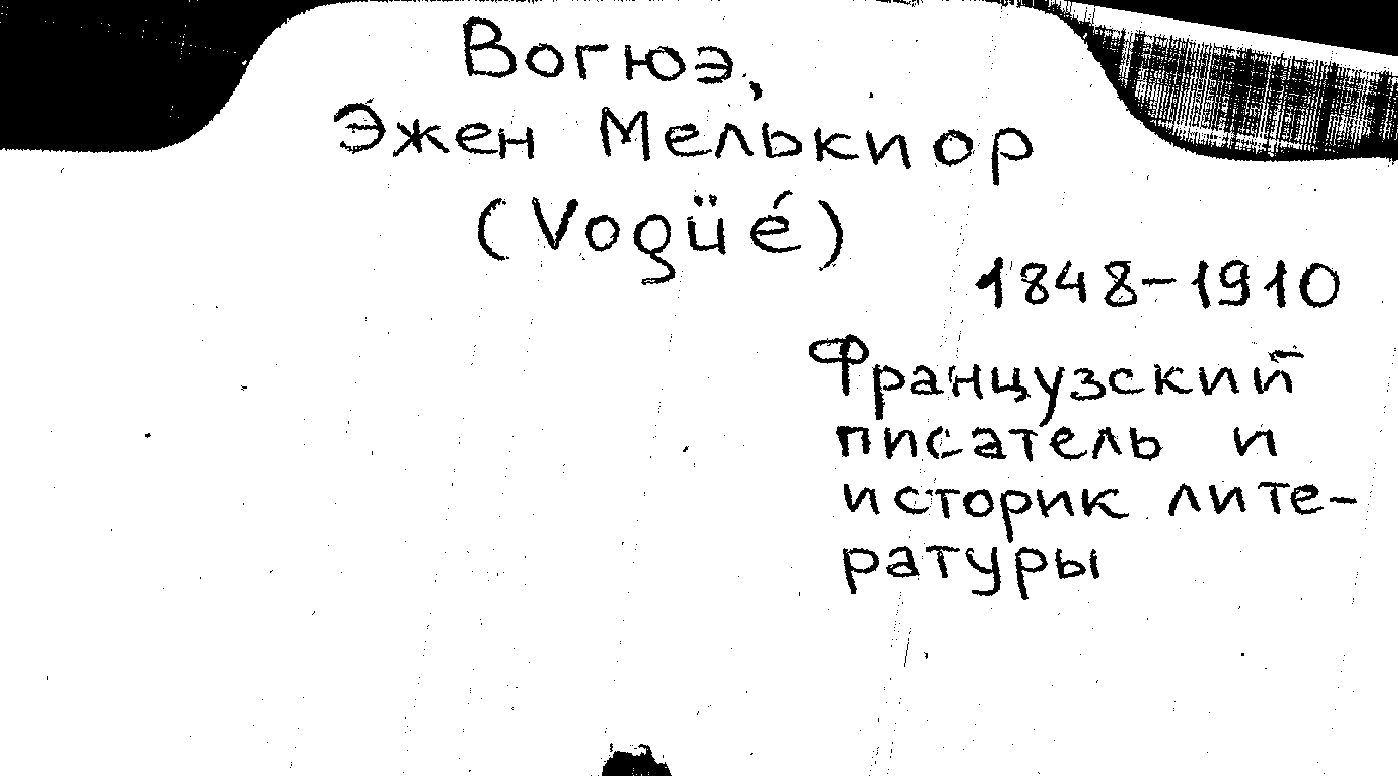 Вогюэ,
Эжен Мелькиор
(Vogüé)
1848-1910
Французский
писатель и
историк лите-
ратуры